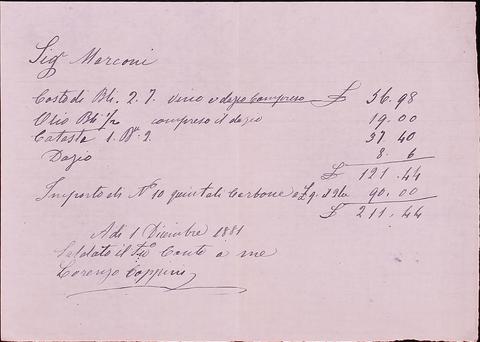 Sigr Marconi
Costo di Bli. 2. 7. vino e dazio compreso £ 36.98
Olio Bli 1/2 compreso il dazio 19.00
Catasta 1. 37 40
Dazio 8. 6
£ 121.44
Importo di No 10 quintali Carbone a £ 9. 90.00
£ 211.44
A di 1 Dicembre 1881
Saldato il Conto a me
Lorenzo Coppino